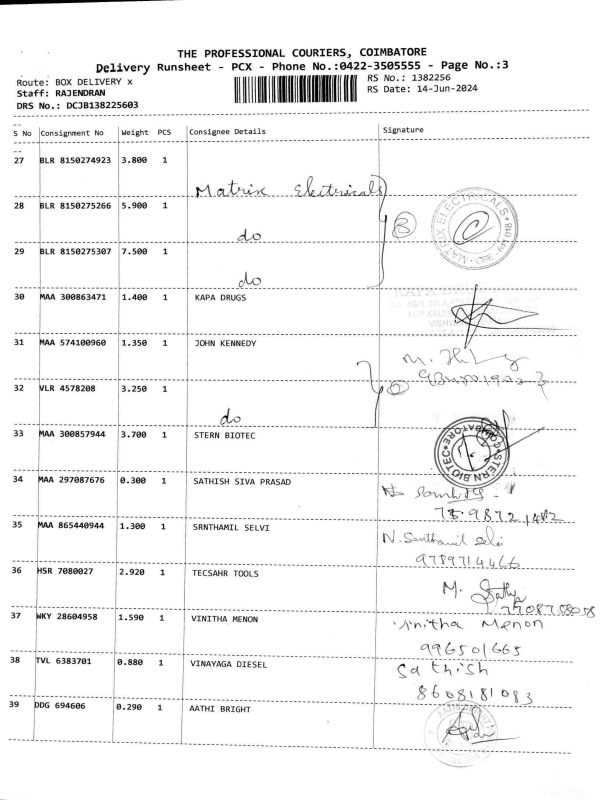 THE PROFESSIONAL COURIERS, COIMBATORE
Delivery Runsheet - PCX - Phone No.:0422-3505555 - Page No.:3
Route: BOX DELIVERY x
RS No.: 1382256
Staff: RAJENDRAN
RS Date: 14-Jun-2024
DRS No.: DCJB138225603
S No Consignment No Weight PCS Consignee Details Signature
27 BLR 8150274923 3.800 1
Matrix Electricals
28 BLR 8150275266 5.900 1
do
3
MATRIX ELECTRICALS
29 BLR 8150275307 7.500 1
do
30 MAA 300863471 1.400 1 KAPA DRUGS
31 MAA 574100960 1.350 1 JOHN KENNEDY
32 VLR 4578208 3.250 1
do
33 MAA 300857944 3.700 1 STERN BIOTEC
STERN BIOTEC COIMBATORE
34 MAA 297087676 0.300 1 SATHISH SIVA PRASAD
35 MAA 865440944 1.300 1 SRNTHAMIL SELVI
N. Santhamil selvi
9789714466
36 HSR 7080027 2.920 1 TECSAHR TOOLS
M. Sathya
37 WKY 28604958 1.590 1 VINITHA MENON
Vinitha Menon
996501665
38 TVL 6383701 0.880 1 VINAYAGA DIESEL
Sathish
8608181083
39 DDG 694606 0.290 1 AATHI BRIGHT